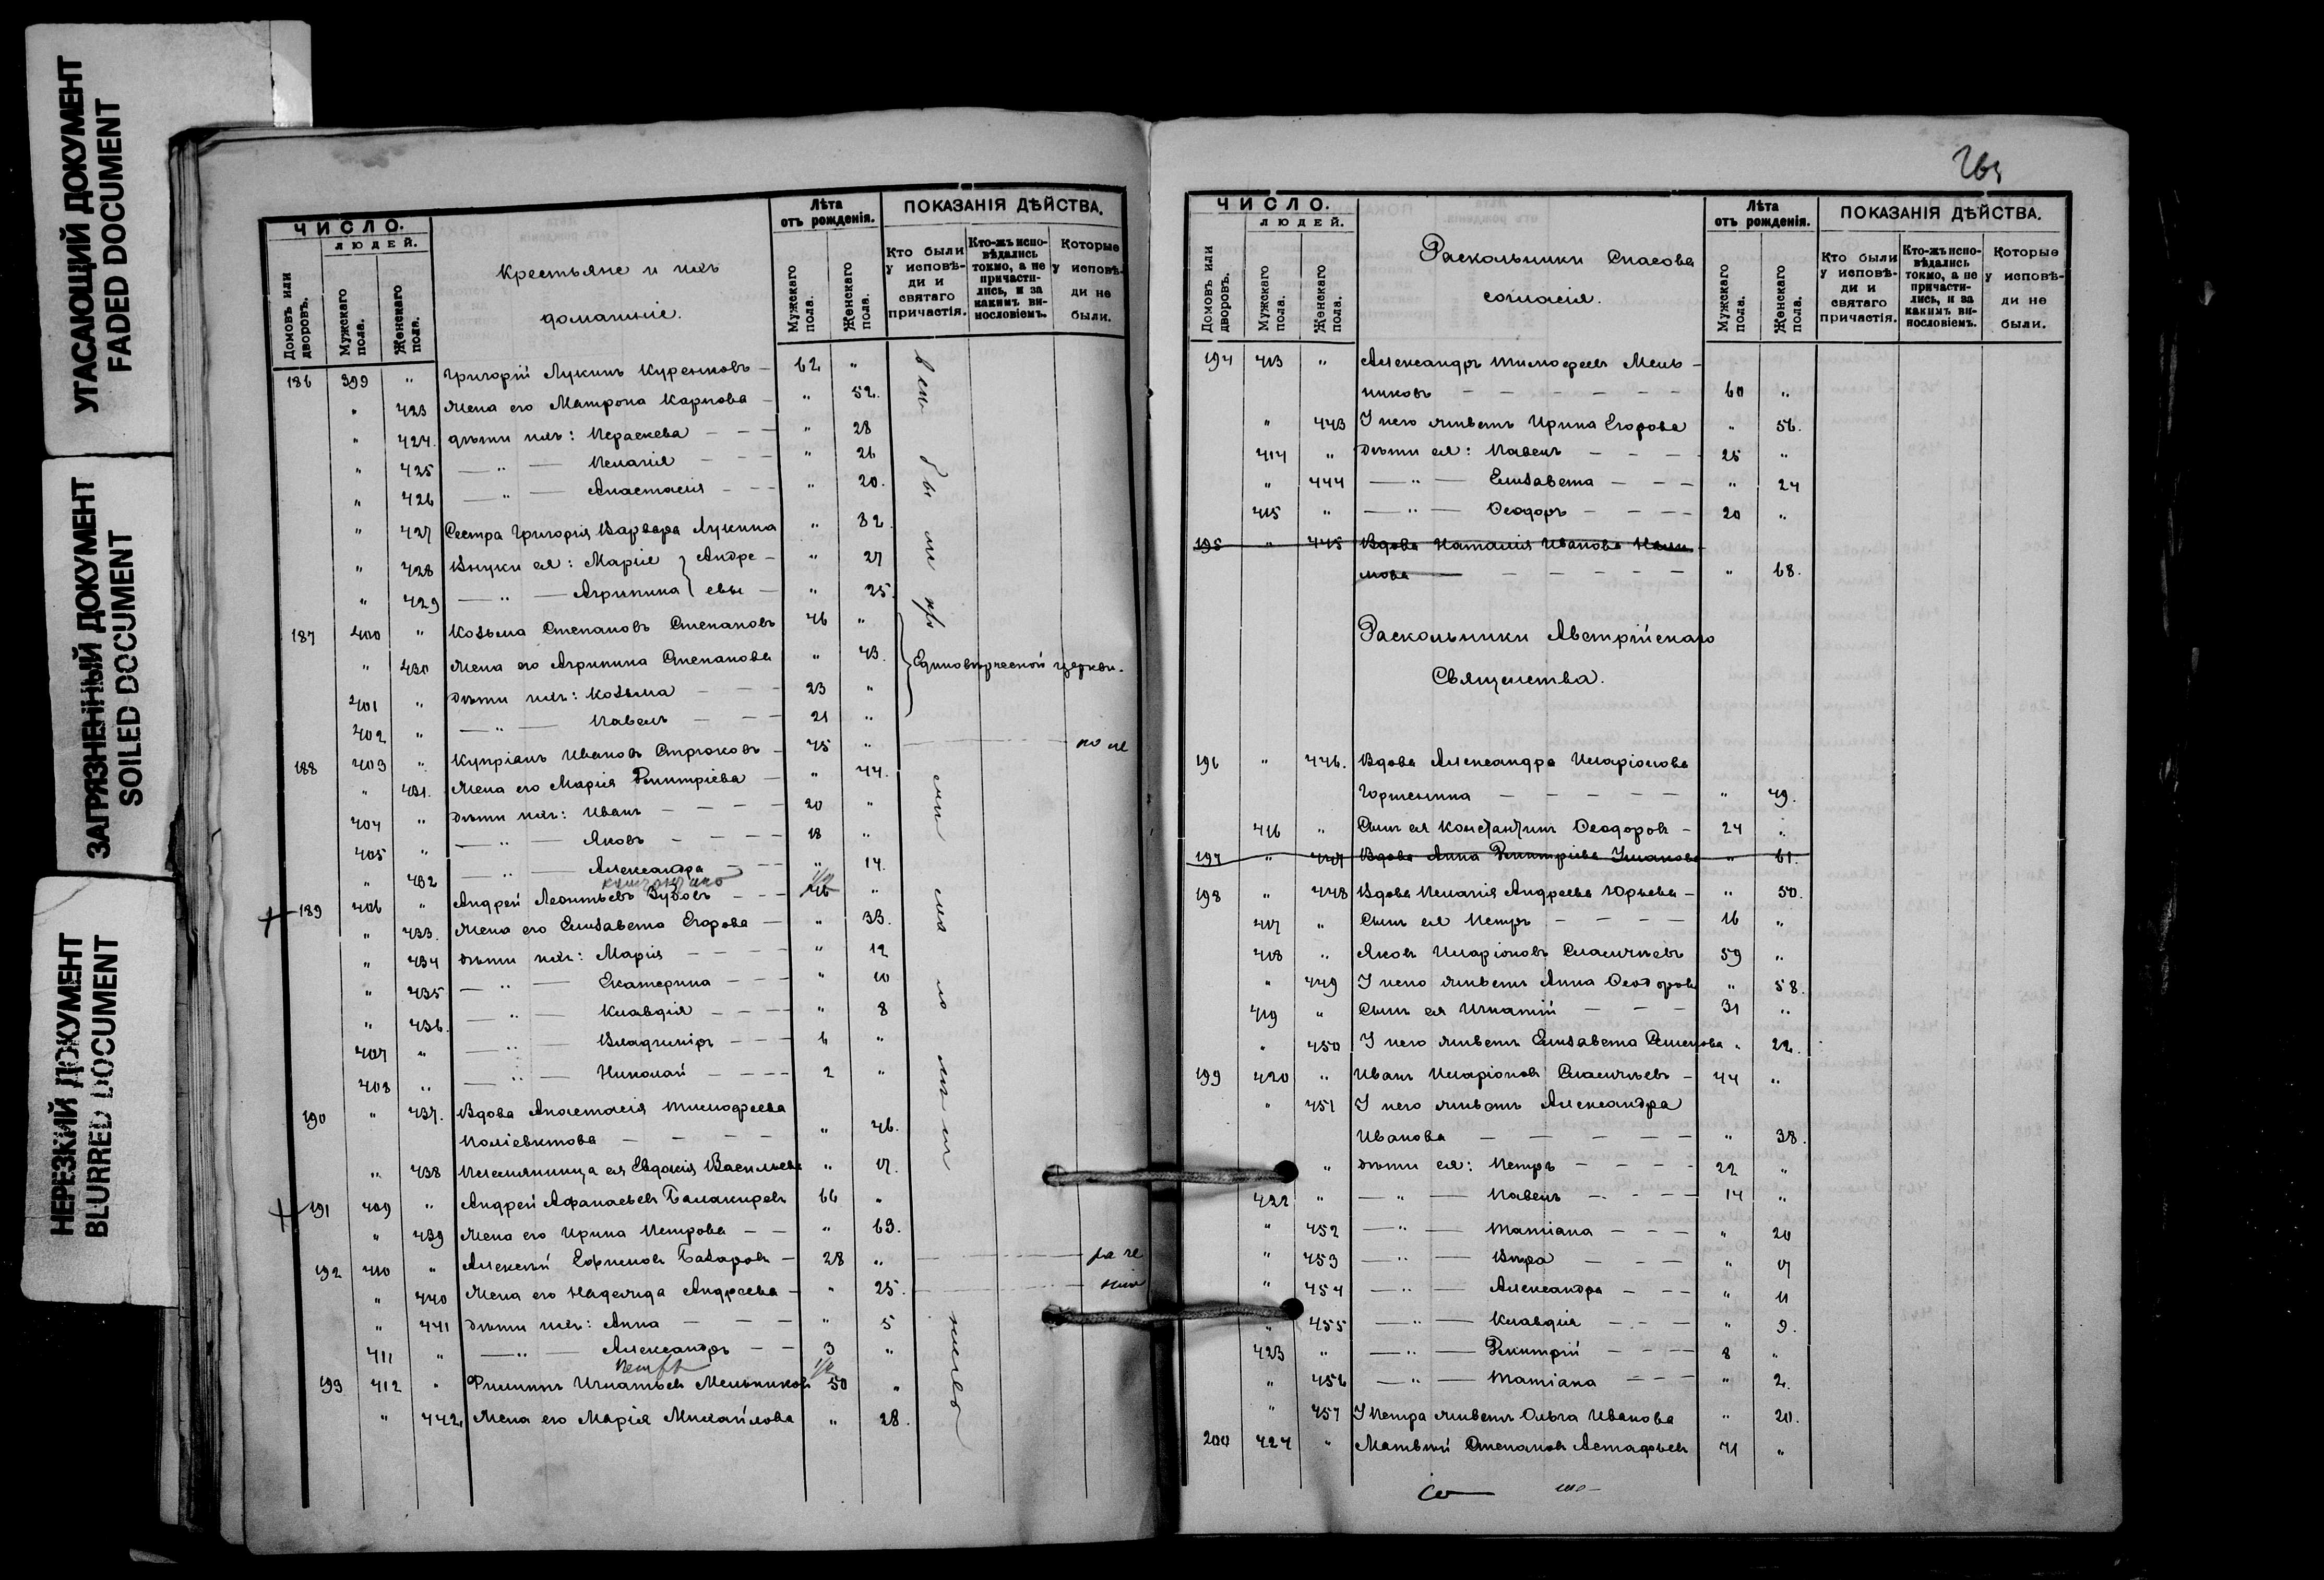 УГАСАЮЩИЙ ДОКУМЕНТ
FADED DOCUMENT
ЗАГРЯЗНЕННЫЙ ДОКУМЕНТ
SOILED DOCUMENT
НЕРЕЗКИЙ ДОКУМЕНТ
BLURRED DOCUMENT
ЧИСЛО.
людей.
Домовъ или дворовъ.
Мужскаго пола.
Женскаго пола.
Крестьяне и ихъ
домашніе.
Лѣта
отъ рожденія.
Мужскаго пола.
Женскаго пола.
ПОКАЗАНІЯ ДѢЙСТВА.
Кто были у исповѣди и святаго причастія.
Кто-жъ исповѣдались токмо, а не причастились, и за какимъ винословіемъ.
Которые у исповѣди не были.
186 399 " Григорій Лукинъ Куренковъ - 62 "
" 423 Жена его Матрона Карпова - " 52.
" 424. дѣти ихъ: Параскева - - - " 28
" 425 — " — Пелагія - - - " 26
" 426 — " — Анастасія - - - " 20.
" 427 Сестра Григорія Варвара Лукина " 32
" 428 Внуки ея: Марія } Андре- " 27
" 429 — " — Агрипина } евы - " 25.
187 400 " Козьма Степановъ Степановъ 46 "
" 430 Жена его Агрипина Степанова " 43. Единовѣрческой церкви.
401 " Дѣти ихъ: Козьма - - - 23 "
402 " — " — Павелъ - - - 21 "
188 403 " Купріанъ Ивановъ Стрюковъ - 45 "
" 431. Жена его Марія Димитріева - " 44.
404 " Дѣти ихъ: Иванъ - - - - 20 "
405 " — " — Яковъ - - - - 18 "
" 432 — " — Александра - - - " 14.
189 406 " Андрей Леонтьевъ Зубовъ - - - 46 "
" 433. Жена его Елизавета Егорова - " 33.
" 434 Дѣти ихъ: Марія - - - - " 12
" 435 — " — Екатерина - - - " 10
" 436. — " — Клавдія - - - - " 8
407 " — " — Владиміръ - - - 6 "
408 " — " — Николай - - - - 2 "
190 " 437. Вдова Анастасія Тимофеева
Поліевктова - - - - " 46.
" 438 Племянница ея Евдокія Васильева " 17.
191 409 " Андрей Афанасьевъ Балакиревъ 66 "
" 439 Жена его Ирина Петрова - - " 63.
192 410 " Алексѣй Ефимовъ Базаровъ - 28 "
" 440 Жена его Надежда Андреева - " 25.
" 441 Дѣти ихъ: Анна - - - " 5
411 " — " — Александръ - - 3 "
193 412 " Филиппъ Игнатьевъ Мельниковъ 50 "
" 442. Жена его Марія Михайлова " 28.
ЧИСЛО.
людей.
Домовъ или дворовъ.
Мужскаго пола.
Женскаго пола.
Раскольники Спасова
согласія.
Лѣта
отъ рожденія.
Мужскаго пола.
Женскаго пола.
ПОКАЗАНІЯ ДѢЙСТВА.
Кто были у исповѣди и святаго причастія.
Кто-жъ исповѣдались токмо, а не причастились, и за какимъ винословіемъ.
Которые у исповѣди не были.
194 413 " Александръ Тимофеевъ Мель-
никовъ - - - - - - - 60 "
" 443 У него живетъ Ирина Егорова " 56.
414 " Дѣти ея: Павелъ - - - - 25 "
" 444 — " — Елизавета - - - " 24
415 " — " — Ѳеодоръ - - - - 20 "
195 " 445 Вдова Наталія Иванова
" 68.
Раскольники Австрійскаго
Священства.
196 " 446. Вдова Александра Иларіонова
Горшенина - - - - - " 49.
416 " Сынъ ея Константинъ Ѳеодоровъ - 24 "
197 " 447 Вдова Анна Димитріева " 61.
198 " 448 Вдова Пелагія Андреева Юрьева - " 50.
417 " Сынъ ея Петръ - - - - 16 "
418 " Яковъ Иларіоновъ 59 "
" 449 У него живетъ Анна Ѳеодорова " 58.
419 " Сынъ ея Игнатій - - - 31 "
" 450 У него живетъ Елизавета " 22.
199 420 " Иванъ Иларіоновъ 44 "
" 451 У него живетъ Александра
Иванова - - - - - - " 38.
" Дѣти ея: Петръ - - - - 22 "
422 " — " — Павелъ - - - - 14 "
" 452 — " — Татіана - - - " 20
" 453 — " — Вѣра - - - " 17
" 454 — " — Александра - - - " 11
" 455 — " — Клавдія - - - " 9.
423 " — " — Димитрій - - - 8 "
" 456 — " — Татіана - - - " 2.
" 457 У Петра живетъ Ольга Иванова " 20.
200 424 " Матвѣй Степановъ Астафьевъ 41 "